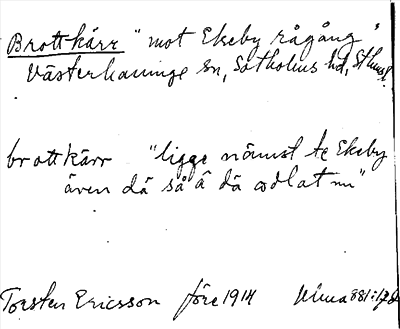 Brottkärr "mot Ekeby rågång"
Västerhaninge sn, Sotholms hd, Sthms l.
brottkärr "ligge nämst te Ekeby
även dä så â dä odlat nu"
Torsten Ericsson före 1914